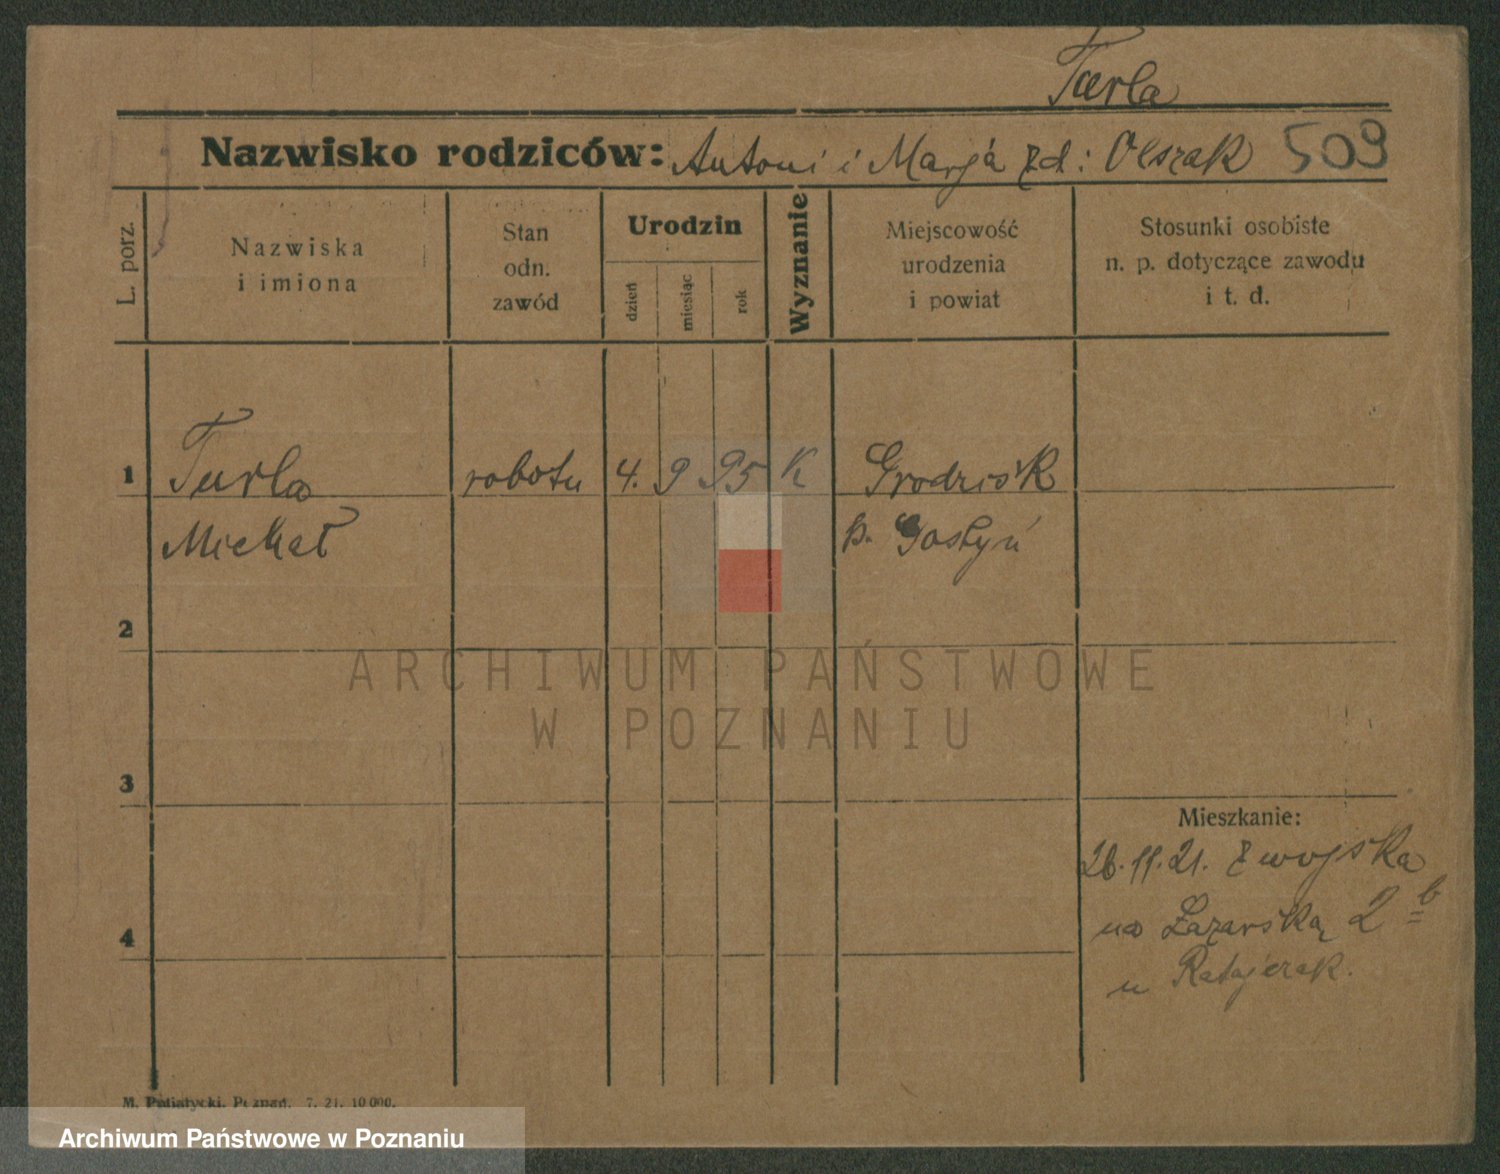 Turla
Nazwisko rodziców: Antoni i Marja zd: Olszak 509
L. porz.
Nazwiska
i imiona
Stan
odn.
zawód
Urodzin
dzień
miesiąc
rok
Wyznanie
Miejscowość
urodzenia
i powiat
Stosunki osobiste
n. p. dotyczące zawodu
i t. d.
1 Turla robotn 4. 9 95 K Grodzisk
Michał p. Gostyń
2
3
4
Mieszkanie:
26.11.21. z wojska
na Łazarską 2b
u Ratajczak.
M. Putiatycki, Poznań. 7. 21. 10 000.
ARCHIWUM PAŃSTWOWE
W POZNANIU
Archiwum Państwowe w Poznaniu